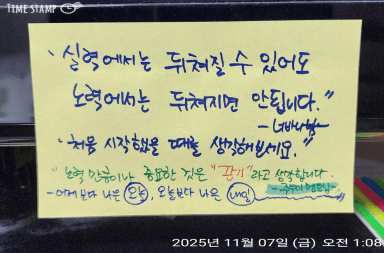 TIME STAMP
"실력에서는 뒤쳐질 수 있어도
노력에서는 뒤쳐지면 안됩니다."
"처음 시작했을 때를 생각해보세요."
"노력 만큼이나 중요한 것은 "끈기"라고 생각합니다.
- 어제보다 나은 오늘, 오늘보다 나은 내일
2025년 11월 07일 (금) 오전 1:08